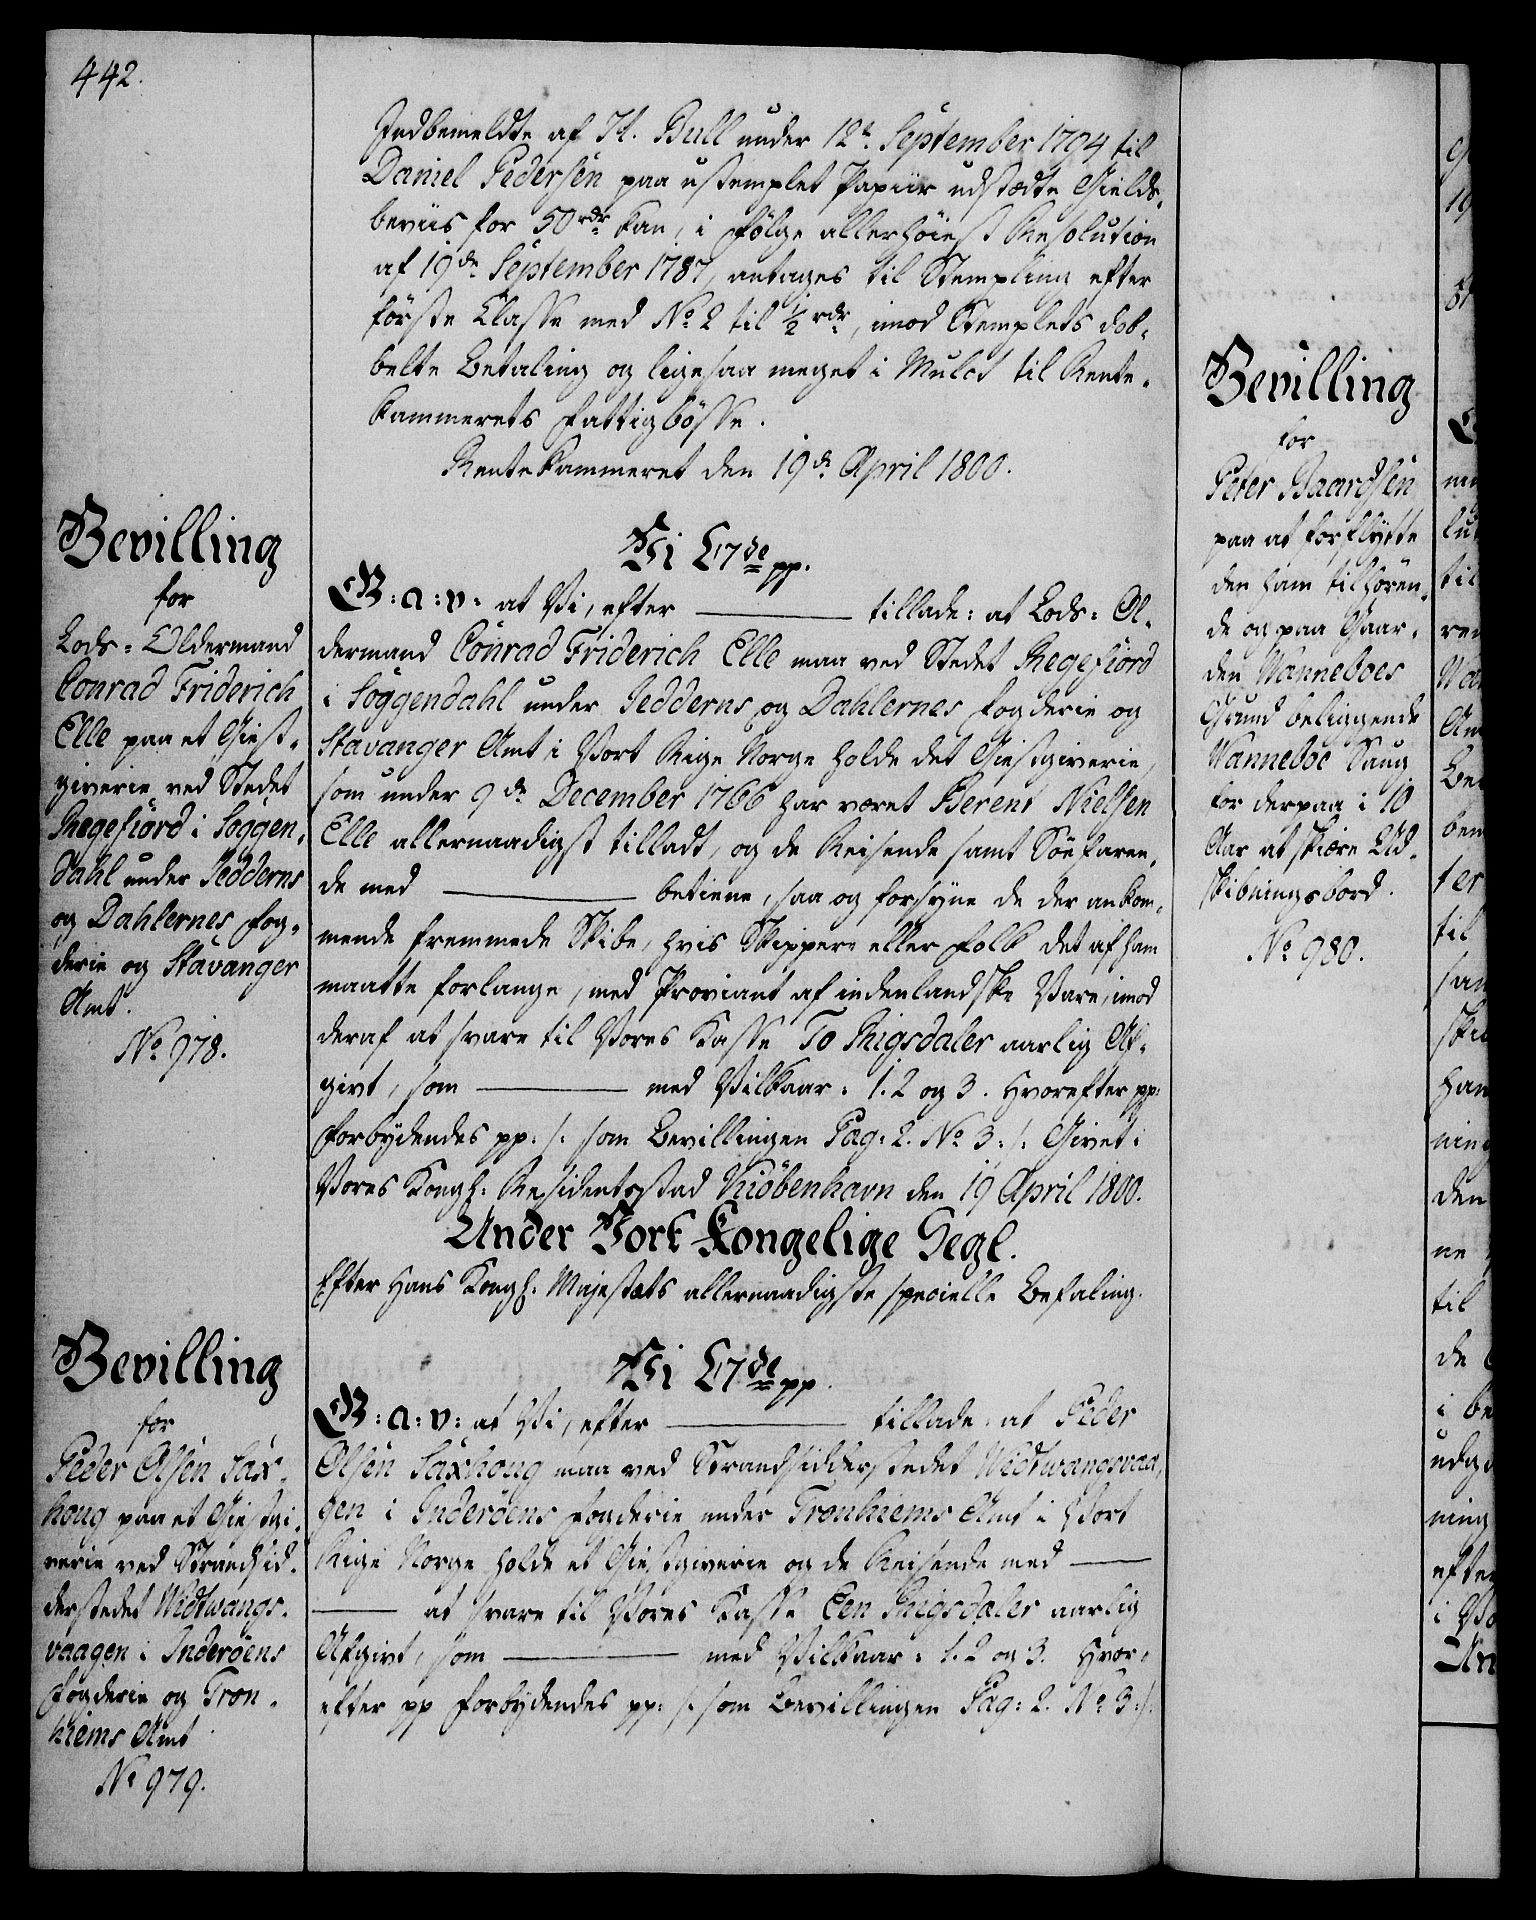 442.
Indbemeldte af H. Bull under 12te September 1794 til
Daniel Pedersen paa ustemplet Papiir udstædte Gields-
beviis for 50 rdr kan, i Følge allerhøiest Resolution
af 19de September 1787, antages til Stempling efter
første Classe med No 2 til 1/2 rdr, imod Stemplets dob-
belte Betaling og ligesaa meget i Mulct til Rente-
kammerets Fattigbøsse.
Rentekammeret den 19de April 1800.
Bevilling
for
Lods-Oldermand
Conrad Friderich
Elle paa et Giest-
giverie ved Stedet
Regefiord i Soggen-
dahl under Jedderns
og Dahlernes Fog-
derie og Stavanger
Amt.
No 978.
Vi C7de pp.
G: a: v: at Vi, efter ——— tillade: at Lods-Ol-
dermand Conrad Friderich Elle maa ved Stedet Regefiord
i Soggendahl under Jedderns og Dahlernes Fogderie og
Stavanger Amt i Vort Rige Norge holde det Giestgiverie,
som under 9de December 1766 har været Berent Nielsen
Elle allernaadigst tilladt, og de Reisende samt Søefaren-
de med ——— betiene, saa og forsyne de der ankom-
mende fremmede Skibe, hvis Skippere eller Folk det af ham
maatte forlange, med Proviant af indenlandske Vare, imod
deraf at svare til Vores Kasse To Rigsdaler aarlig Af-
givt, som ——— med Vilkaar: 1. 2 og 3. Hvorefter pp:
Forbydendes pp: /: som Bevillingen Pag: 2. No 3: /: Givet i
Vores Kongl: Residentzstad Kiøbenhavn den 19 April 1800.
Under Vort Kongelige Segl.
Efter Hans Kongl: Majestæts allernaadigste specielle Befaling.
Bevilling
for
Peder Olsen Sax-
houg paa et Giestgi-
verie ved Strandsid-
derstedet Widtwangs-
vaagen i Inderøens
Fogderie og Tron-
hiems Amt.
No 979.
Vi C7de pp.
G: a: v: at Vi, efter ——— tillade: at Peder
Olsen Saxhoug maa ved Strandsidderstedet Widtwangsvaa-
gen i Inderøens Fogderie under Tronhiems Amt i Vort
Rige Norge holde et Giestgiverie og de Reisende med ———
——— at svare til Vores Kasse Een Rigsdaler aarlig
Afgivt, som ——— med Vilkaar: 1. 2 og 3. Hvor-
efter pp Forbydendes pp: /: som Bevillingen Pag: 2. No 3: /:
Bevilling
for
Peter Baardsen
paa at forflytte
den ham tilhøren-
de og paa Gaar-
den Wanneboes
Grund beliggende
Wanneboe Saug
for derpaa i 10
Aar at skiære Ud-
skibningsbord.
No 980.